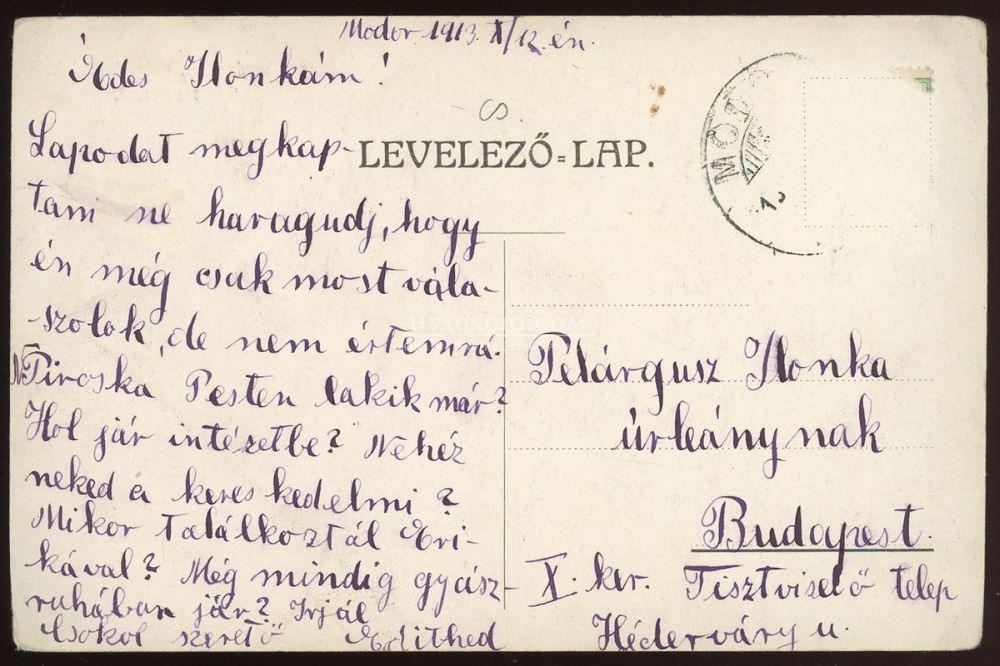 Modor 1913 X/12 én.
Édes Ilonkám!
LEVELEZŐ=LAP.
Lapodat megkap-
tam ne haragudj, hogy
én még csak most vála-
-szolok, de nem értemrá.
Piroska Pesten lakik már?
Hol jár intézetbe? Nehéz
neked a kereskedelmi?
Mikor találkoztál Eri-
kával? Még mindig gyász-
ruhában jár? Irjál
Csokol szerető Edithed
MOD
Pelárgusz Ilonka
úrleánynak
Budapest.
X. ker. Tisztviselő telep
Héderváry u.